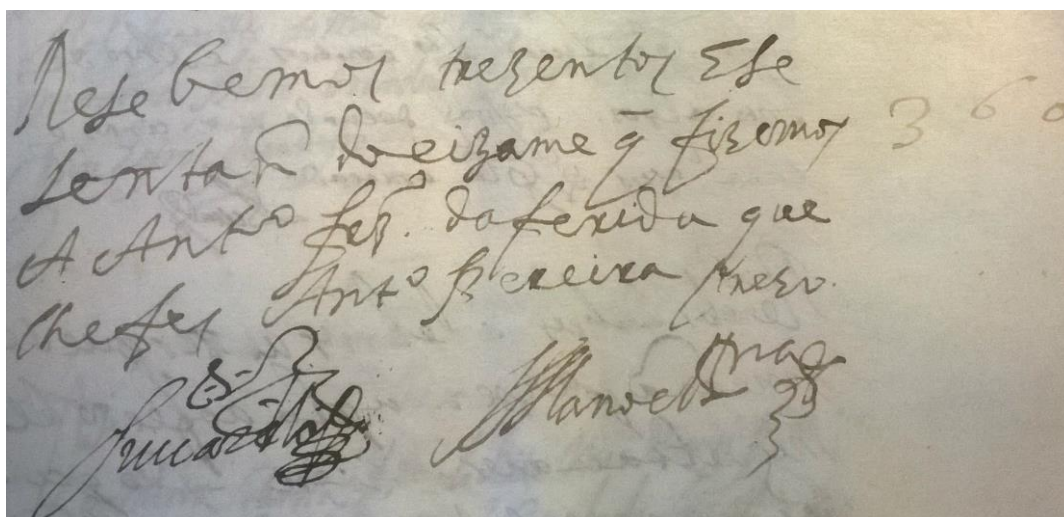 Resebemos trezentos E se
senta rs do eizame q̃ fizemos 360
A Antº frz. da ferida que
lhe fes Antº Pereira prezo
Manoel